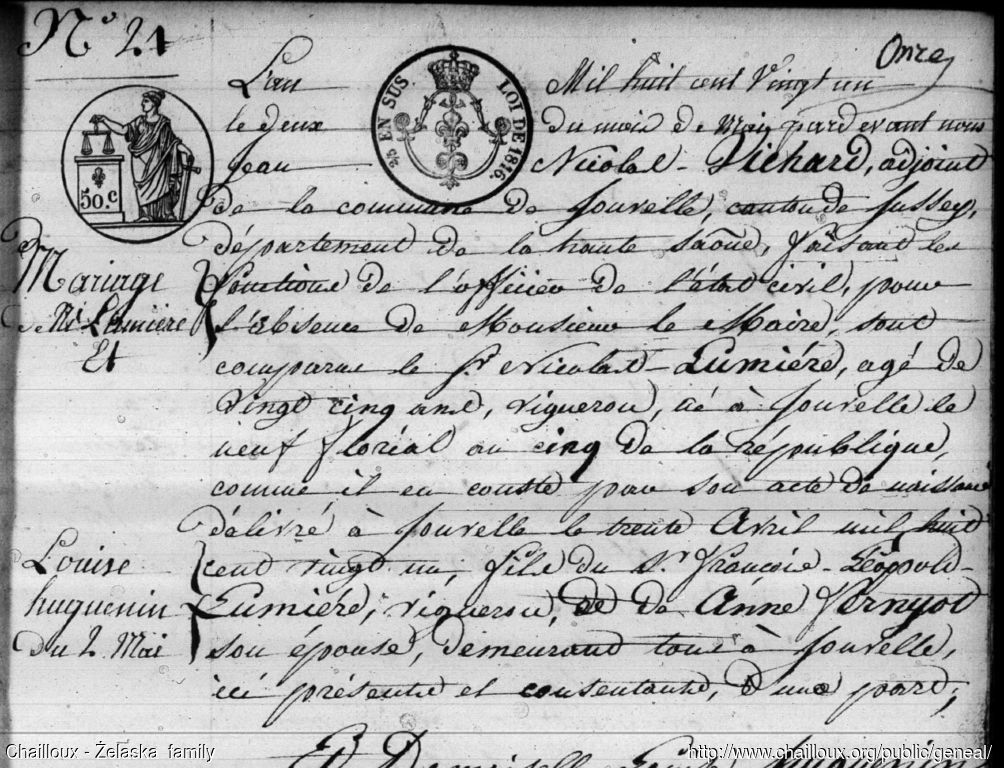 N° 21
Onze
EN SUS
LOI DE 1816.
50.c
L'an Mil huit cent Vingt un
le deux du mois de Mai, pardevant nous
Jean Nicolas Vichard, adjoint
de la commune de Jonvelle, canton de Jussey,
département de la haute saône, faisant les
fonctions de l'officier de l'état civil, pour
l'absence de Monsieur le Maire, sont
comparu le Sr Nicolas Lumiére, agé de
Vingt cinq ans, vigneron, né à Jonvelle le
neuf floréal an cinq de la république,
comme il en conste par son acte de naissance
délivré à Jonvelle le trente Avril mil huit
cent vingt un, fils du Sr François-Léopold-
Lumiére, vigneron, et de Anne Vernyot
son épouse, demeurant tous à Jonvelle,
ici présents et consentants, d'une part,
Et Demoiselle Louise huguenin
Mariage
de Nas Lumière
Et
Louise
huguenin
du 2 Mai
Chailloux - Żelaska family
http://www.chailloux.org/public/geneal/